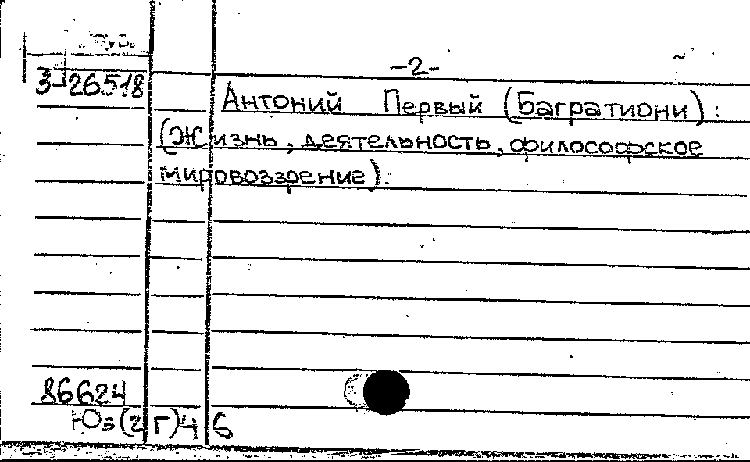 -2-
3-26518
Антоний Первый (Багратиони):
(Жизнь, деятельность, философское
мировоззрение).
86624
Юз(2Г)46